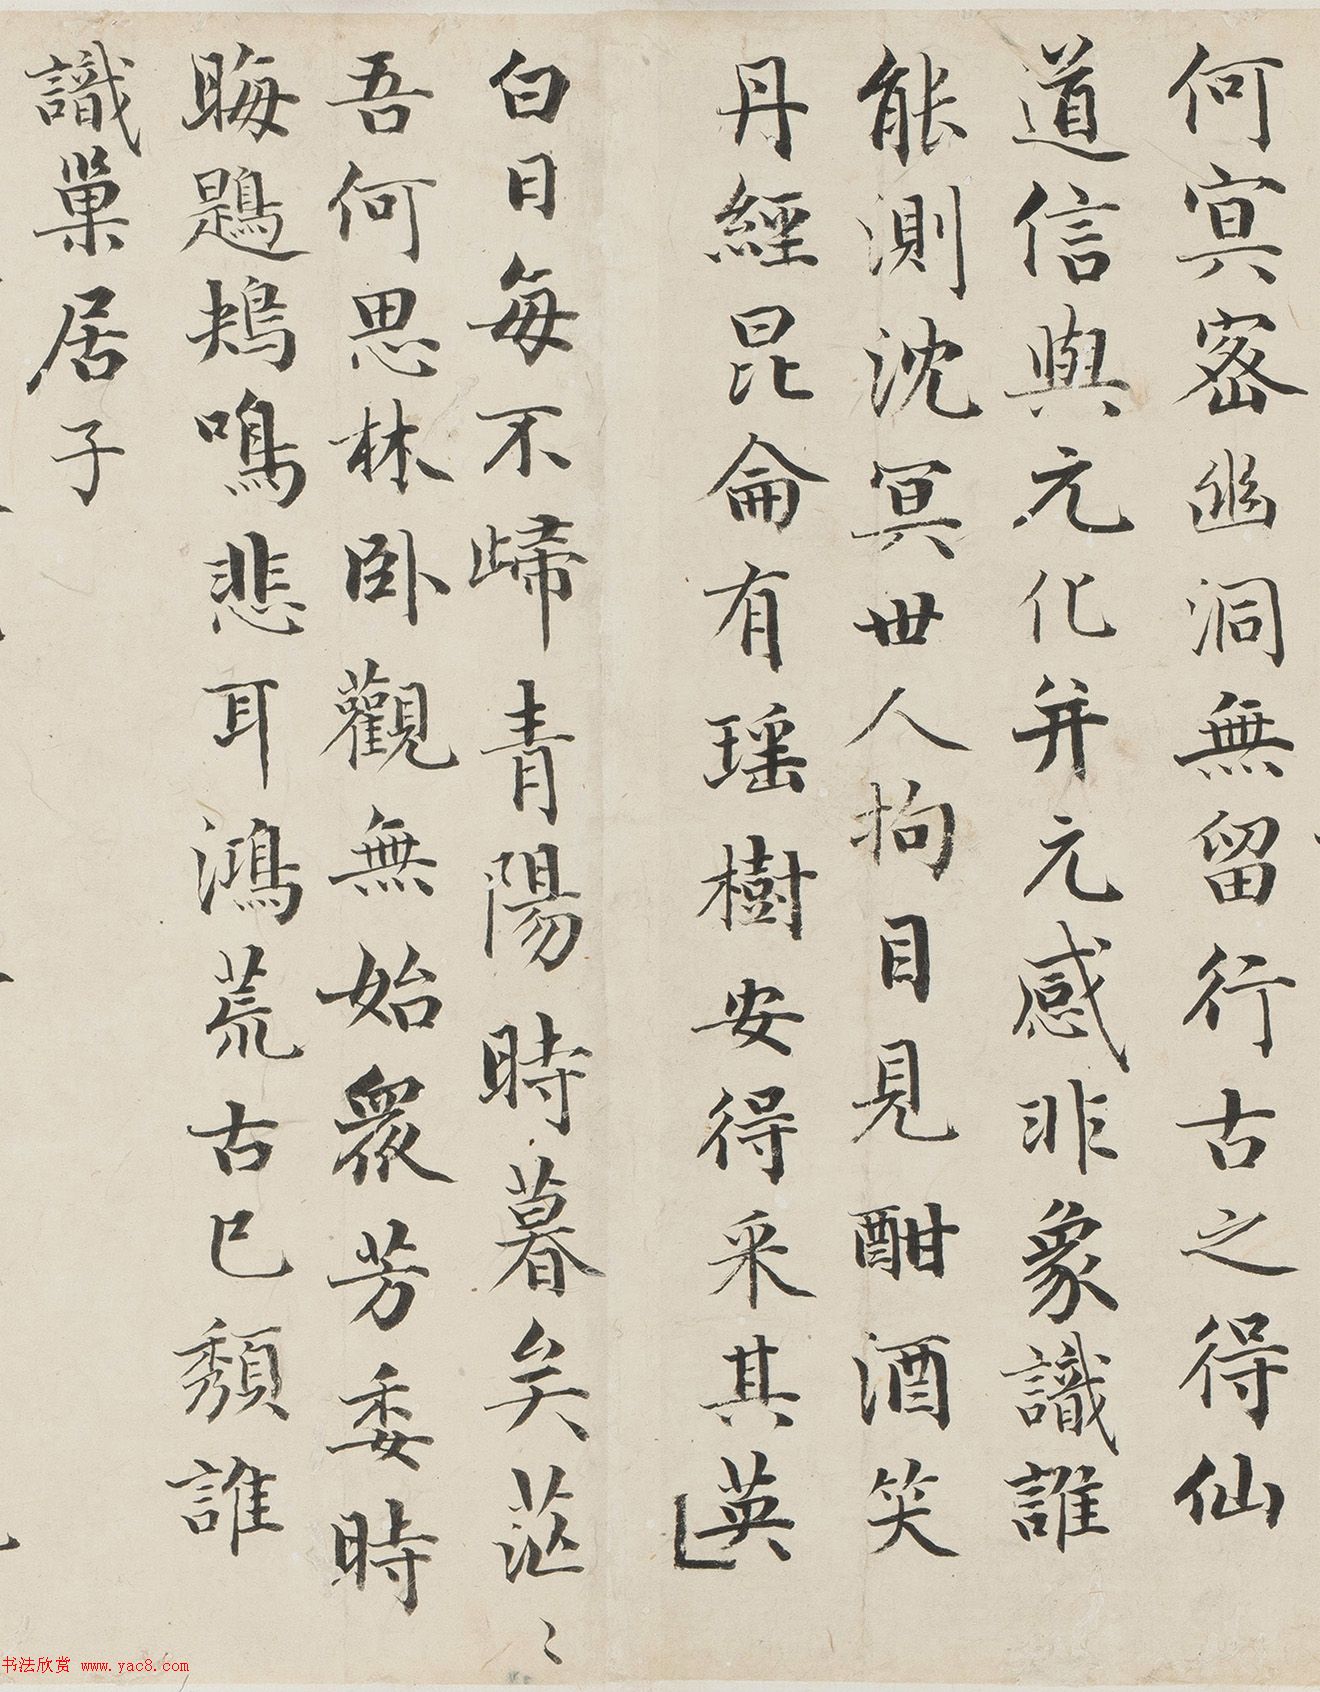 何冥密幽洞無留行古之得仙
道信與元化并元感非象識誰
能測沈冥世人拘目見酣酒笑
丹經昆侖有瑶樹安得采其英
白日每不歸青陽時暮矣茫〻
吾何思林卧觀無始衆芳委時
晦鶗鴂鳴悲耳鴻荒古已頹誰
識巢居子
书法欣赏 www.yac8.com